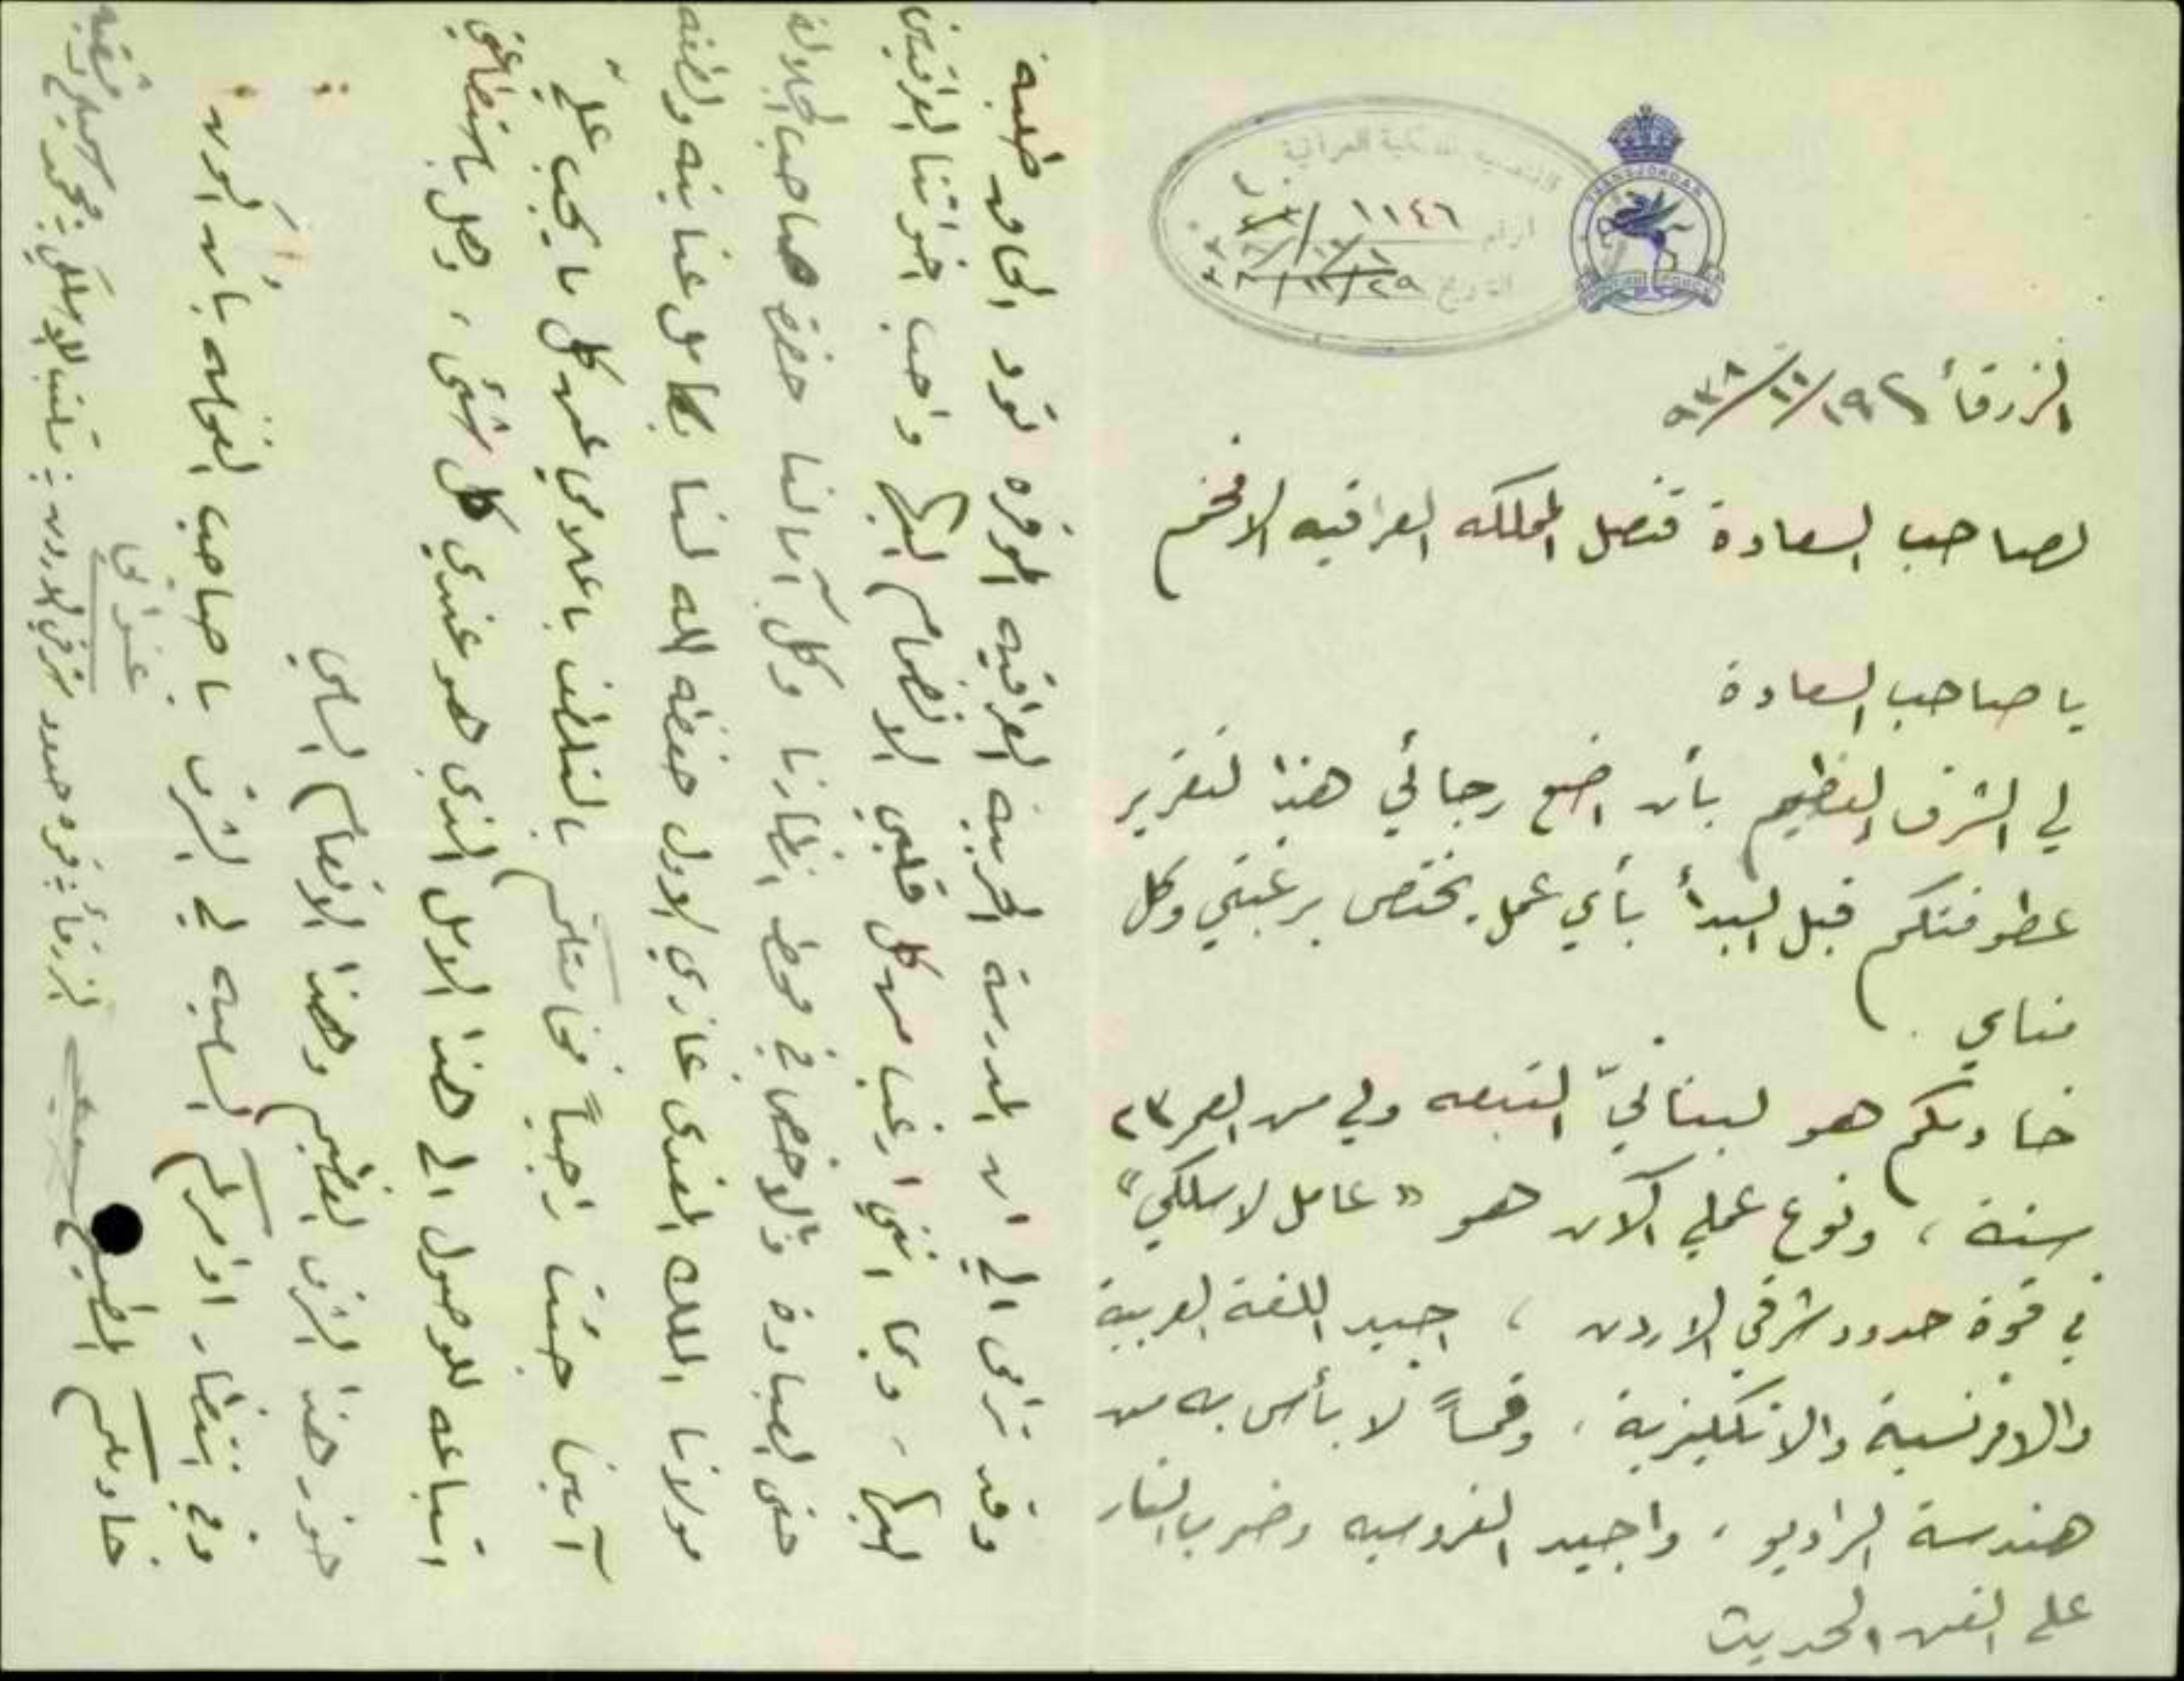 TRANSJORDAN
القنصلية الملكية العراقية
الرقم ١١٤٦
التاريخ ٢٩
الزرقأ
لصاحب السعادة قنصل المملكه العراقيه الافخم
يا صاحب السعادة
لي الشرف العظيم بأن اضع رجائي هذا لتقرير
عطوفتكم قبل البدأ بأي عمل يختص برغبتي وكل
مناي .
خادمكم هو لبنانيّ التبعه ولي من العمر ٢٣
سنة ، ونوع عملي الآن هو « عامل لاسلكي »
في قوة حدود شرقي الاردن ، اجيد اللغة العربية
والافرنسية والانكليزية ، وقسماً لا بأس به من
هندسة الراديو ، واجيد الفروسيه وضرب النار
على الفن الحديث
وقد ترامى الي ان المدرسة الحربية العراقيه الموقره تود الحاق طلبة
اليها ، وبما انني ارغب من كل قلبي الانضمام اليكم واحب اخواتنا العراقيين
حتى العبادة والاخص في محط انظارنا وكل آمالنا حضرة صاحب الجلالة
مولانا الملك المفدى غازي الاول حفظه الله لنا بكامل عنايته ولطفه
آمين جئت راجياً فخامتكم بالتلطف باعلامي عن كل ما يجب عليّ
اتباعه للوصول الى هذا الامل الذي هو عندي كل شئ ، وهل باستطاعتي
حوز هذا الشرف العظيم وهذا الانعام السامي
وفي انتظار اوامركم الساميه لي الشرف يا صاحب الفخامه بأن أكون
خادمكم المطيع
عنواني
الزرقأ : قوه حدود شرقي الاردن : مكتب اللاسلكي :